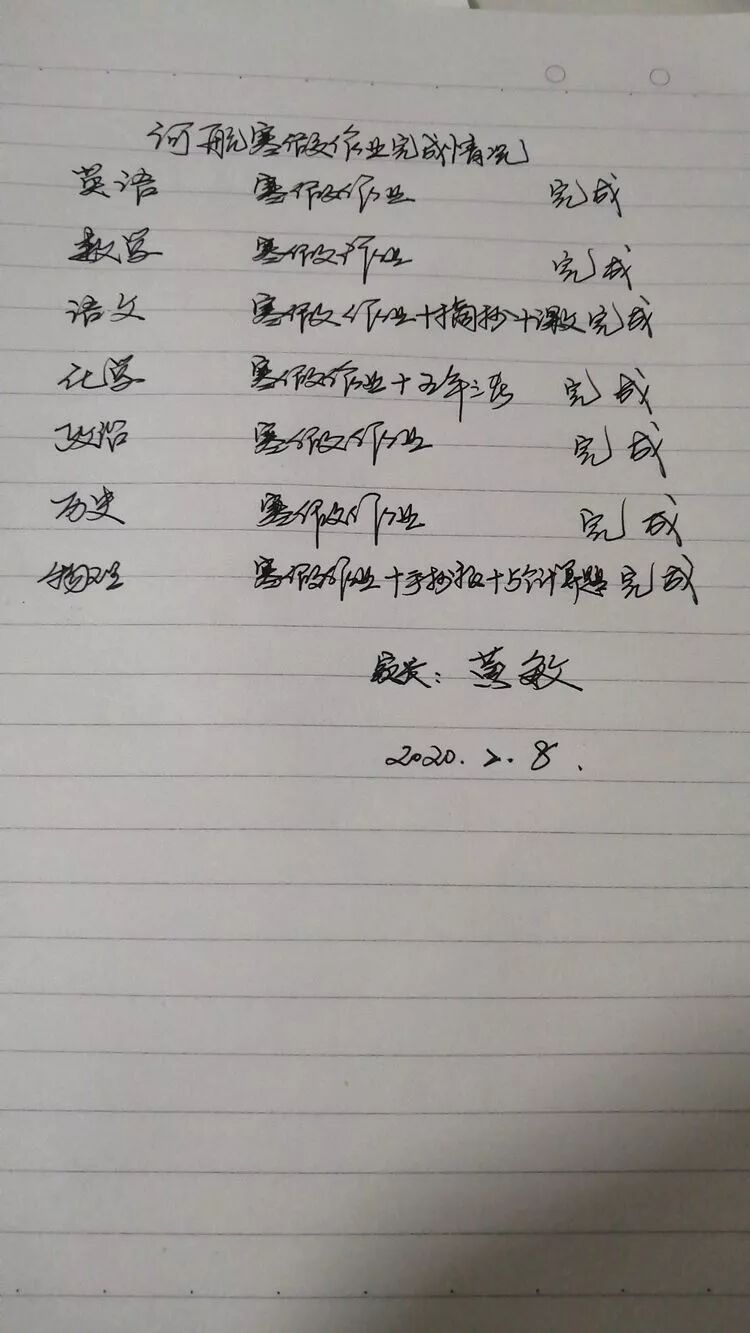 何航寒假作业完成情况
英语 寒假作业 完成
数学 寒假作业 完成
语文 寒假作业+摘抄+课文 完成
化学 寒假作业+五年三 完成
政治 寒假作业 完成
历史 寒假作业 完成
物理 寒假作业+手抄报+5个计算题 完成
家长：黄敏
2020.2.8.